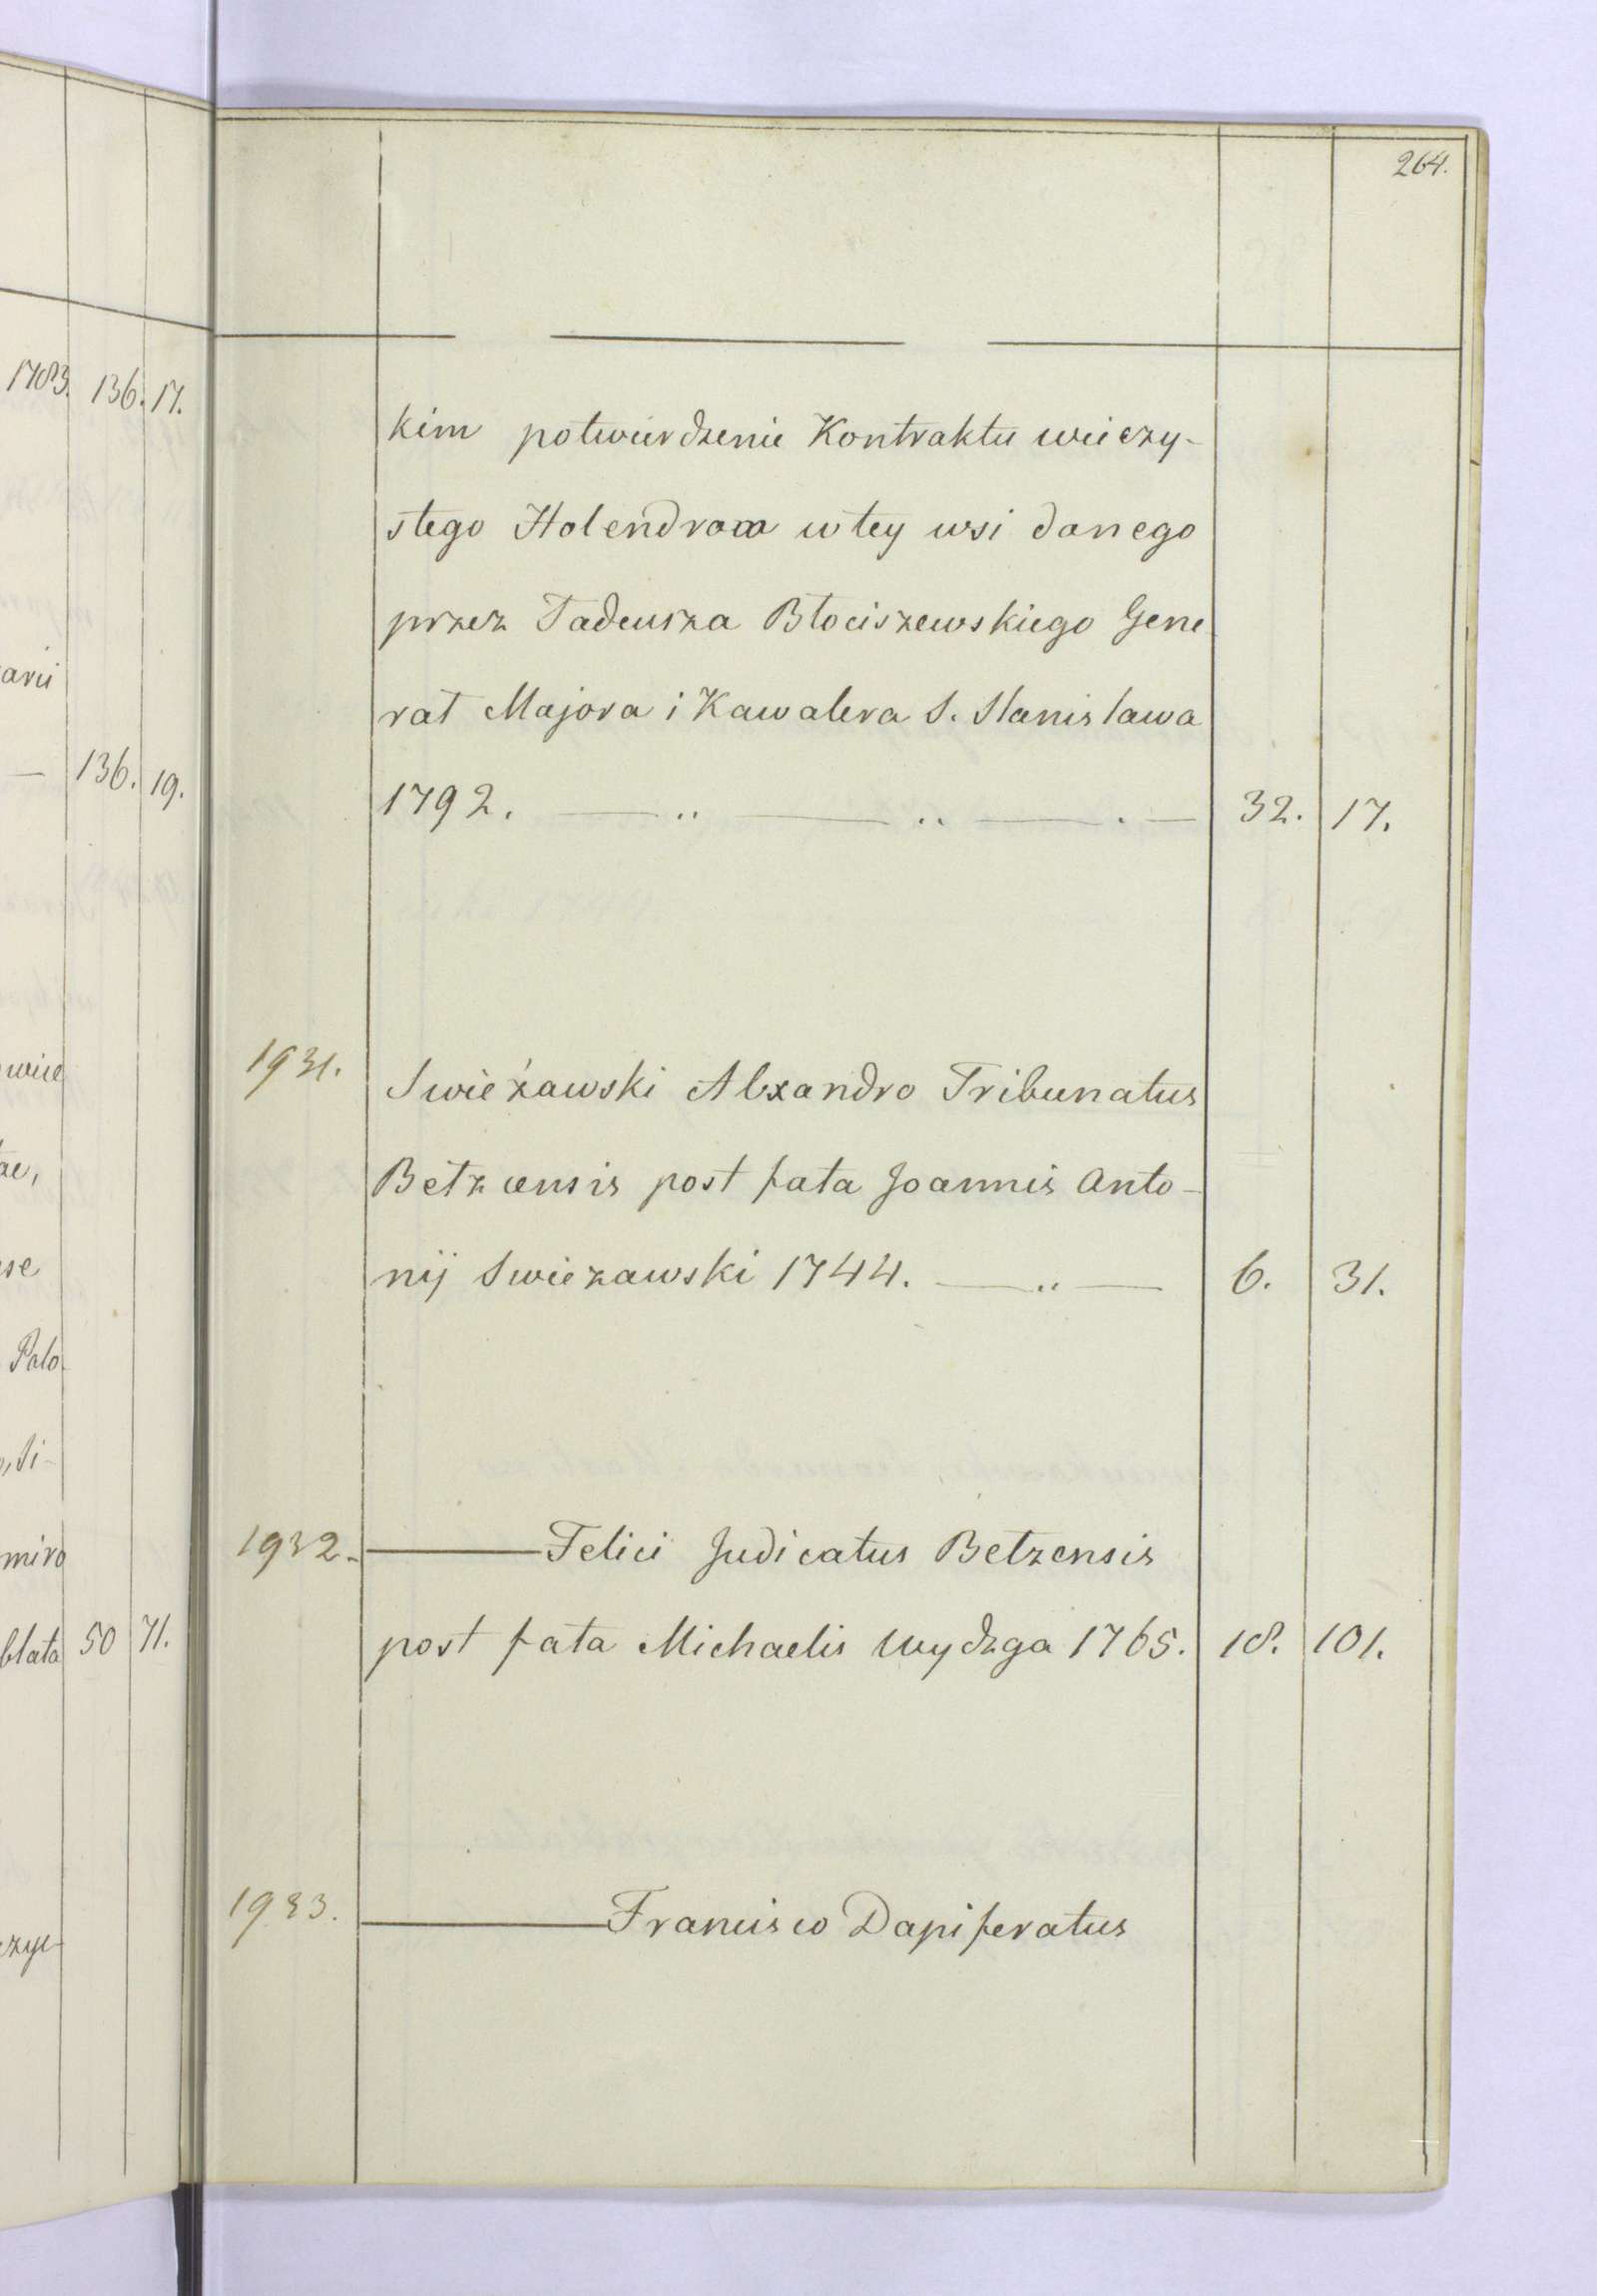 264.
1783. 136. 17.
arii
— 136. 19.
wiie
ae,
se
Palo
, Si-
miro
blata 50 71.
czyc
kim potwierdzenie Kontraktu wieczy-
stego Holendrom w tey wsi danego
przez Tadeusza Błociszewskiego Gene
rał Majora i Kawalera S. Stanisława
1792. — .. — .. — . — 32. 17.
1931. Swieżawski Alexandro Tribunatus
Bełzcensis post fata Joannis Anto-
nij Swiezawski 1744. — .. — 6. 31.
1932. — Felici Judicatus Belzensis
post fata Michaelis Wydzga 1765. 18. 101.
1933. — Francisco Dapiferatus